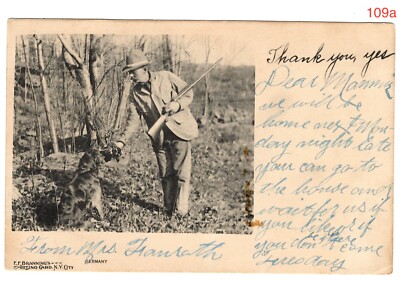 109a
Thank you, yes
Dear Mannie
we will be
home next Mon-
day night late
you can go to
the house and
wait for us if
you like or if
you don't come
be there
Tuesday
From Mrs.
F.F. BRANNING'S
SPORTING CARD, N.Y. CITY
GERMANY